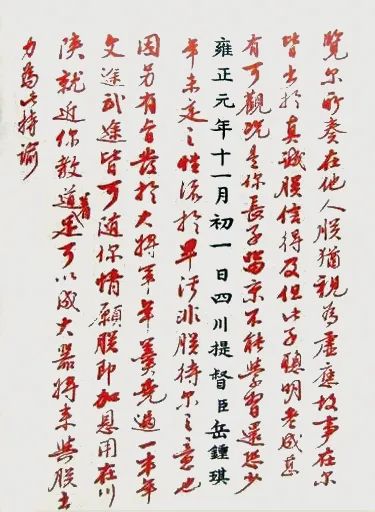 覽尔所奏在他人朕猶視為虛應故事在尔
皆出於真誠朕信得及但此子聰明老成甚
有可觀況是你長子留京不能學習還恐少
雍正元年十一月初一日四川提督臣岳鍾琪
年未定之性流於卑汚非朕待尔之意也
因另有旨發於大將軍年羹堯過一半年
文途武途皆可隨你情願朕即加恩用在川
陝就近你教道着足可以成大器將來與朕出
力為此特諭